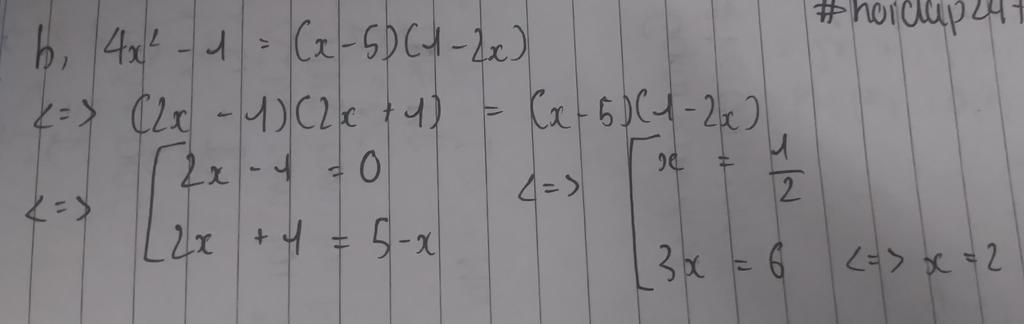 #hoidap247
b, 4x² - 1 = (x-5)(1-2x)
<=> (2x - 1)(2x + 1) = (x-5)(1-2x)
<=> [2x - 1 = 0 <=> [x = 1/2
2x + 1 = 5-x 3x = 6 <=> x = 2